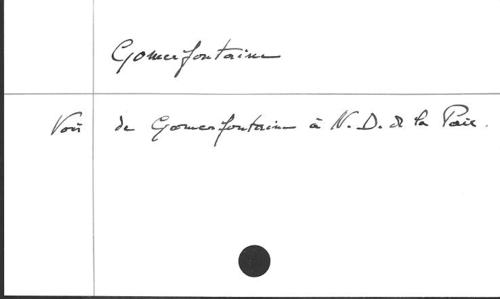 Gomerfontaine
Voir de Gomerfontaine à N. D. de la Paix.